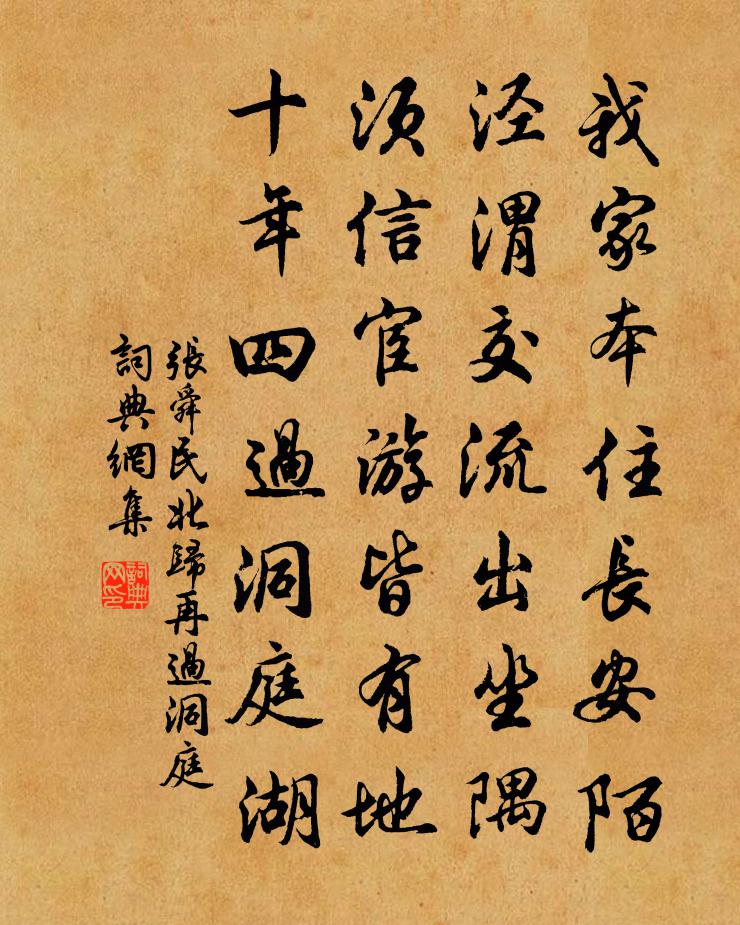 我家本住長安陌
泾渭交流出坐隅
须信宦游皆有地
十年四過洞庭湖
張舜民北歸再過洞庭
詞典網集
詞典网印